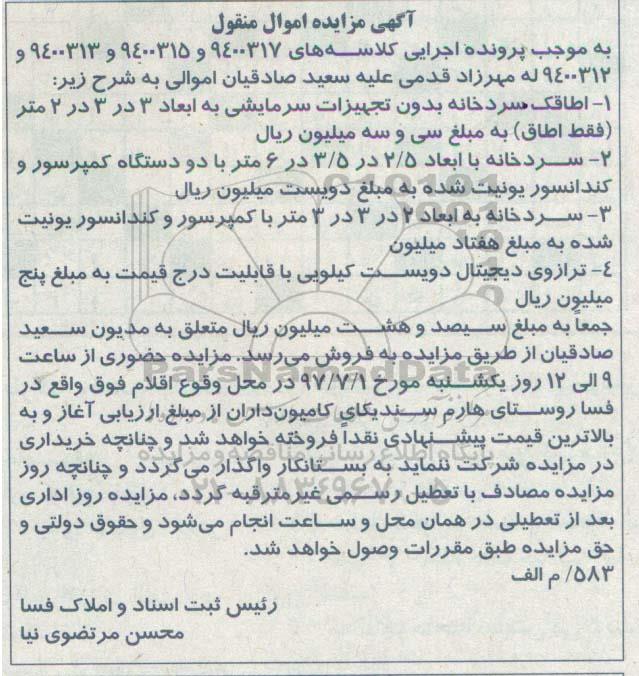 آگهی مزایده اموال منقول
به موجب پرونده اجرایی کلاسه‌های ۹۴۰۰۳۱۷ و ۹۴۰۰۳۱۵ و ۹۴۰۰۳۱۳ و
۹۴۰۰۳۱۲ له مهرزاد قدمی علیه سعید صادقیان اموالی به شرح زیر:
۱- اطاقک سردخانه بدون تجهیزات سرمایشی به ابعاد ۳ در ۳ در ۲ متر
(فقط اطاق) به مبلغ سی و سه میلیون ریال
۲- سردخانه با ابعاد ۲/۵ در ۳/۵ در ۶ متر با دو دستگاه کمپرسور و
کندانسور یونیت شده به مبلغ دویست میلیون ریال
۳- سردخانه به ابعاد ۲ در ۳ در ۳ متر با کمپرسور و کندانسور یونیت
شده به مبلغ هفتاد میلیون
۴- ترازوی دیجیتال دویست کیلویی با قابلیت درج قیمت به مبلغ پنج
میلیون ریال
جمعاً به مبلغ سیصد و هشت میلیون ریال متعلق به مدیون سعید
صادقیان از طریق مزایده به فروش می‌رسد. مزایده حضوری از ساعت
۹ الی ۱۲ روز یکشنبه مورخ ۹۷/۷/۱ در محل وقوع اقلام فوق واقع در
فسا روستای هارم سندیکای کامیون‌داران از مبلغ ارزیابی آغاز و به
بالاترین قیمت پیشنهادی نقداً فروخته خواهد شد و چنانچه خریداری
در مزایده شرکت ننماید به بستانکار واگذار می‌گردد و چنانچه روز
مزایده مصادف با تعطیل رسمی غیرمترقبه گردد، مزایده روز اداری
بعد از تعطیلی در همان محل و ساعت انجام می‌شود و حقوق دولتی و
حق مزایده طبق مقررات وصول خواهد شد.
۵۸۳/ م الف
رئیس ثبت اسناد و املاک فسا
محسن مرتضوی نیا
ParsNamadData
پایگاه اطلاع رسانی مناقصه و مزایده
۰۲۱-۸۸۳۴۹۶۷۰-۵